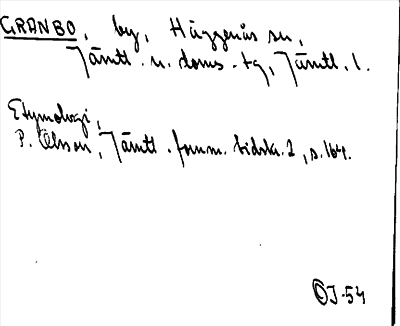 GRANBO, by, Häggenås sn,
Jämtl. n. doms.-tg, Jämtl. l.
Etymologi,
P. Olsson, Jämtl. fornm. tidskr. 2, s. 164.
OJ-54